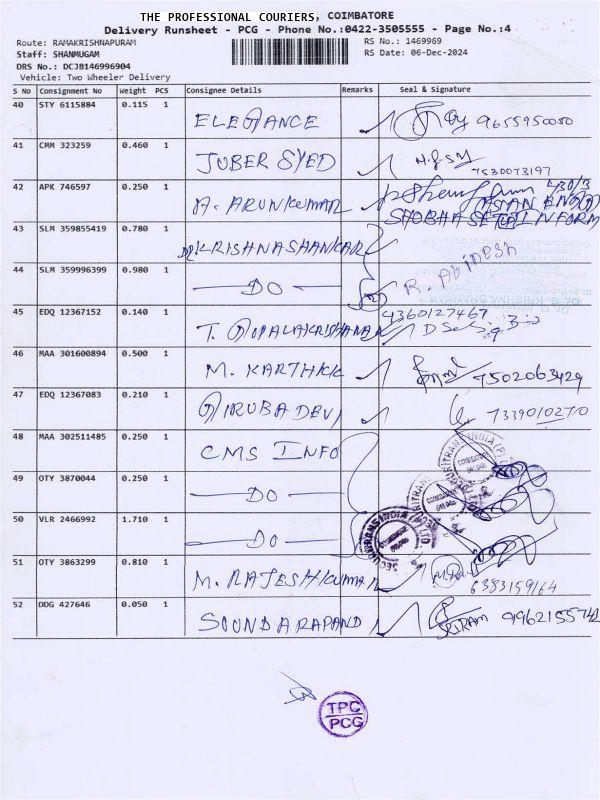 THE PROFESSIONAL COURIERS, COIMBATORE
Delivery Runsheet - PCG - Phone No.:0422-3505555 - Page No.:4
Route: RAMAKRISHNAPURAM
RS No.: 1469969
Staff: SHANMUGAM
RS Date: 06-Dec-2024
DRS No.: DCJB146996904
Vehicle: Two Wheeler Delivery
S No Consignment No Weight PCS Consignee Details Remarks Seal & Signature
40 STY 6115884 0.115 1 ELEGANCE 9655950050
41 CMM 323259 0.460 1 JUBER SYED 7530073197
42 APK 746597 0.250 1 A. ARUNKUMAR
43 SLM 359855419 0.780 1 DR KRISHNASHANKAR
44 SLM 359996399 0.980 1 DO R. Abinesh
45 EDQ 12367152 0.140 1 T. GOPALAKRISHANAN 9360127467
46 MAA 301600894 0.500 1 M. KARTHKK 7502063429
47 EDQ 12367083 0.210 1 GIRUBA DEVI 7339010270
48 MAA 302511485 0.250 1 CMS INFO
49 OTY 3870044 0.250 1 DO
50 VLR 2466992 1.710 1 DO
51 OTY 3863299 0.810 1 M. RAJESHKUMAR 6383159164
52 DDG 427646 0.050 1 SOUNDARAPANDI SRIRAM 9962155741
TPC
PCG